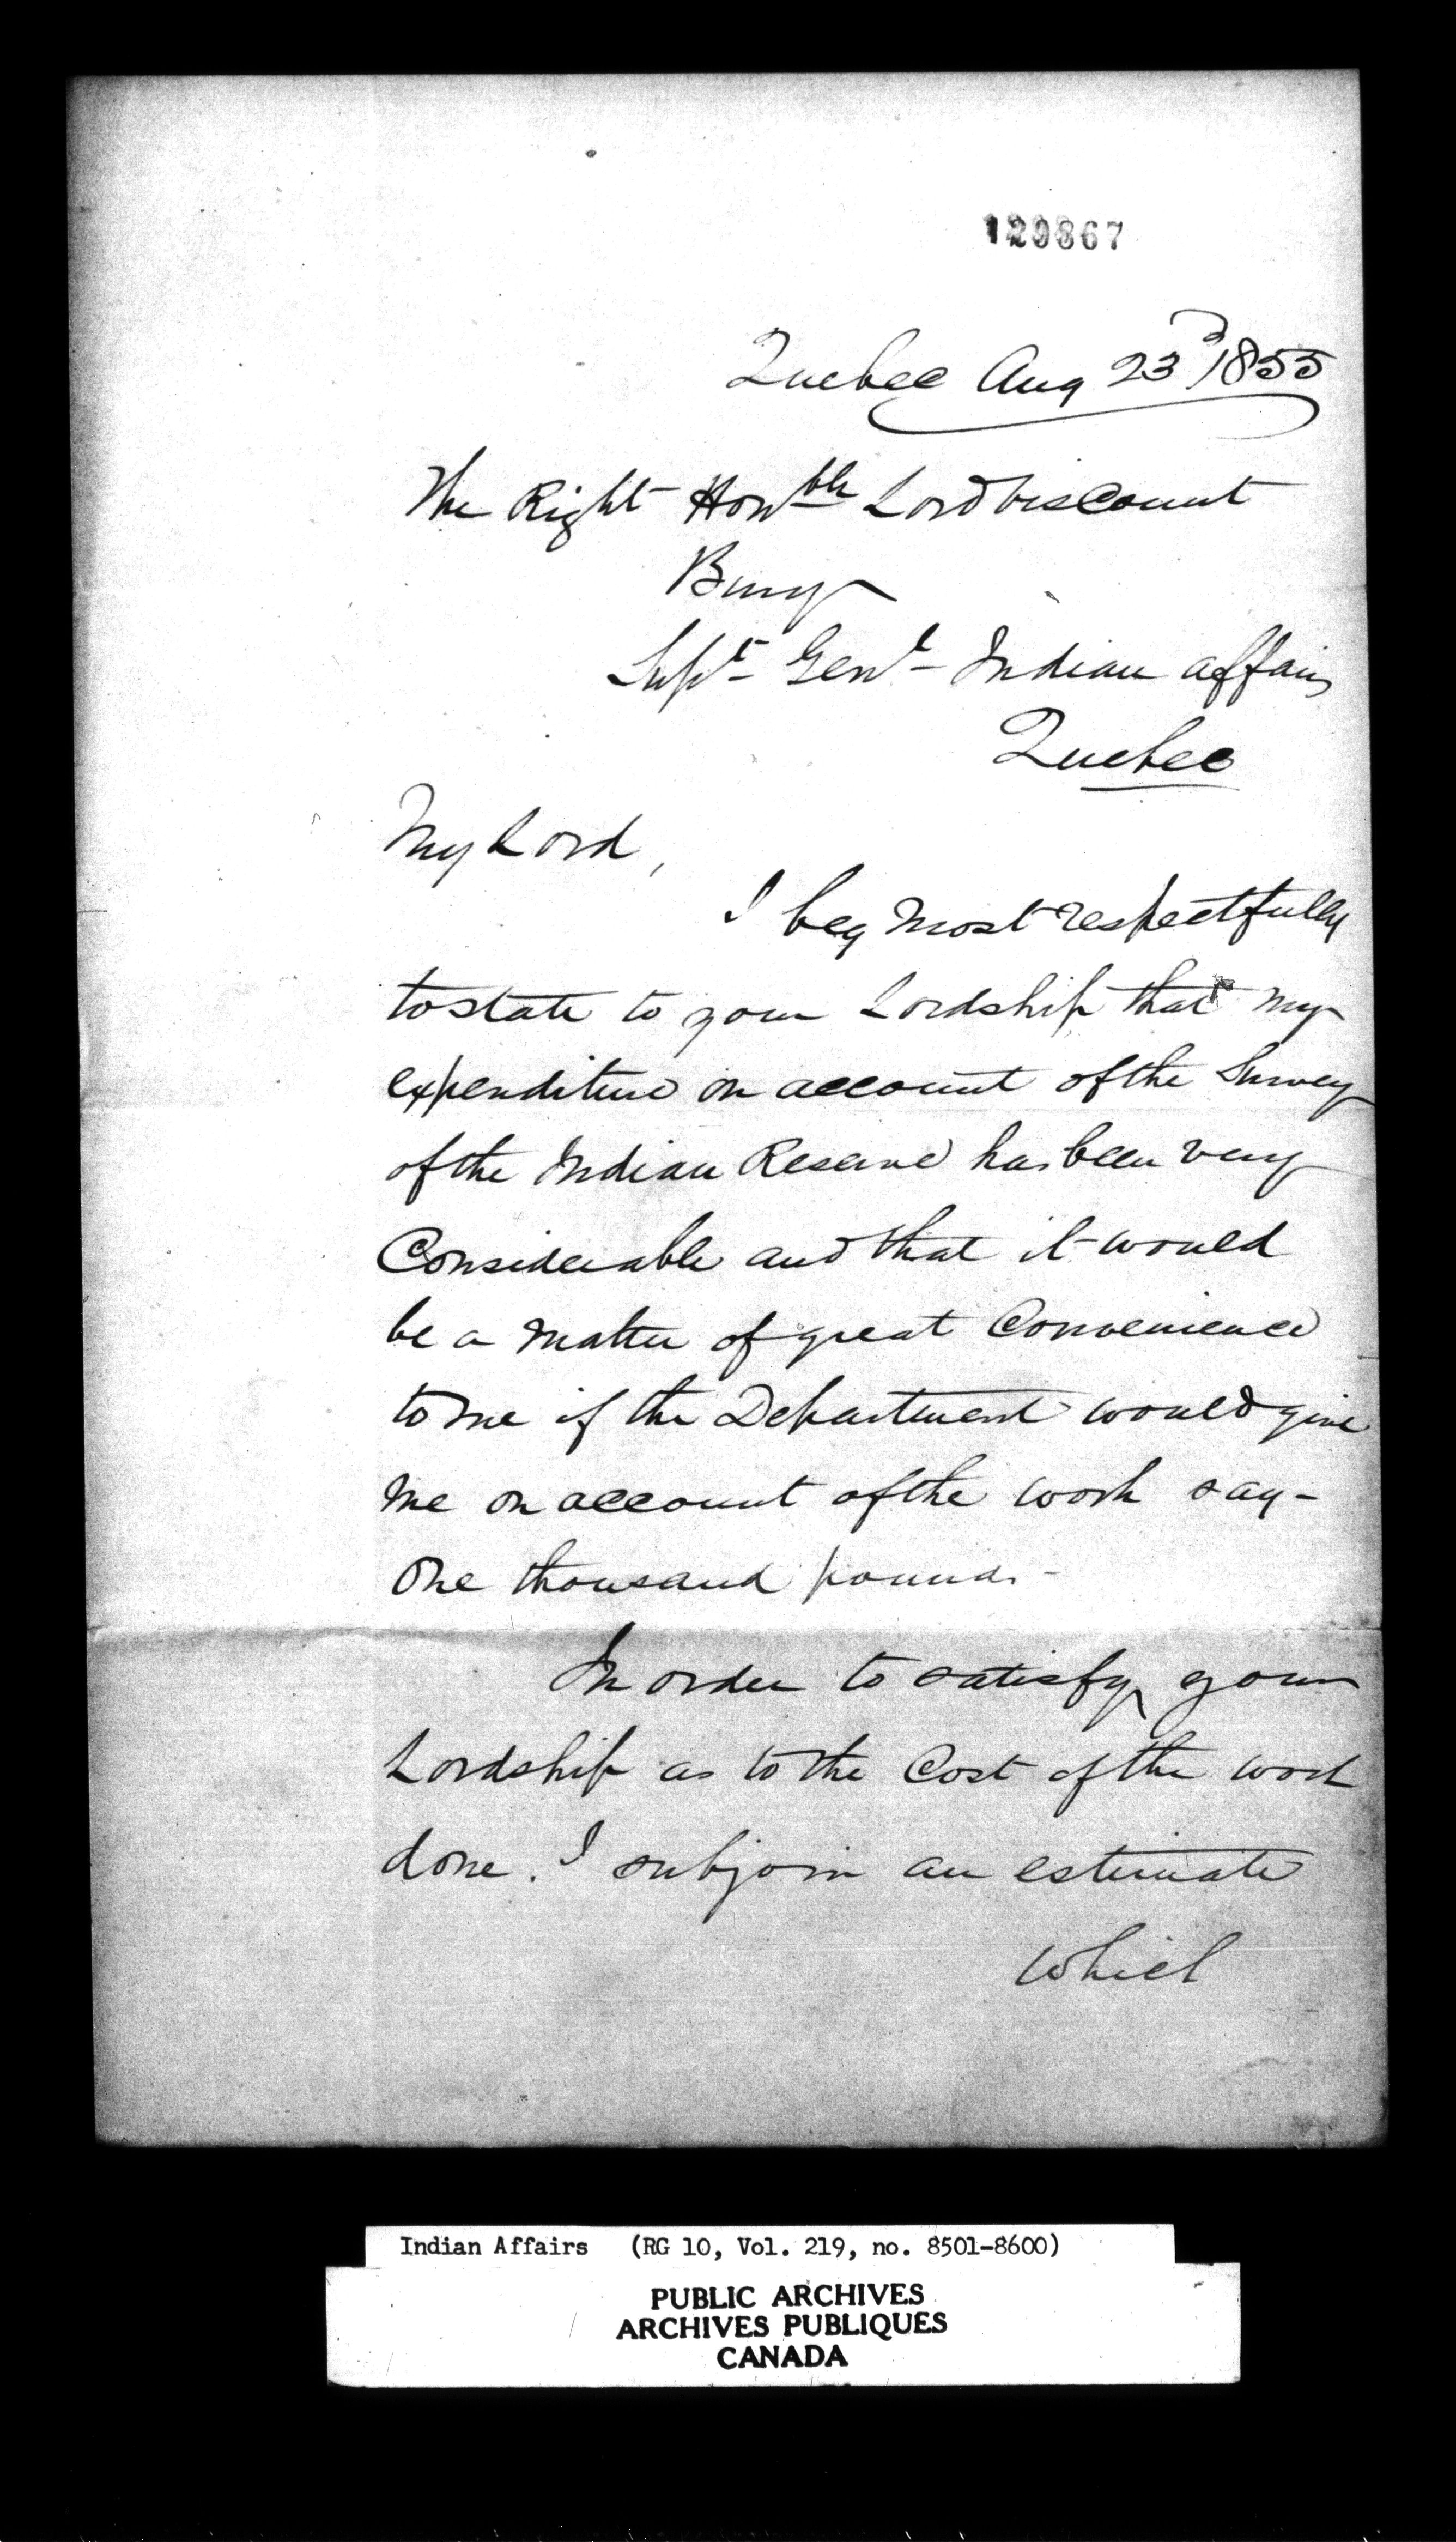 129867
Quebec Aug 23d 1855
The Right Honble Lord Viscount
Bury
Supt Genl Indian affairs
Quebec
My Lord,
I beg most respectfully
to state to your Lordship that my
expenditure on account of the Survey
of the Indian Reserve has been very
Considerable and that it would
be a matter of great Convenience
to me if the Department would give
me on account of the work say -
One thousand pounds -
In order to satisfy your
Lordship as to the Cost of the work
done. I subjoin an estimate
which
Indian Affairs (RG 10, Vol. 219, no. 8501-8600)
PUBLIC ARCHIVES
ARCHIVES PUBLIQUES
CANADA